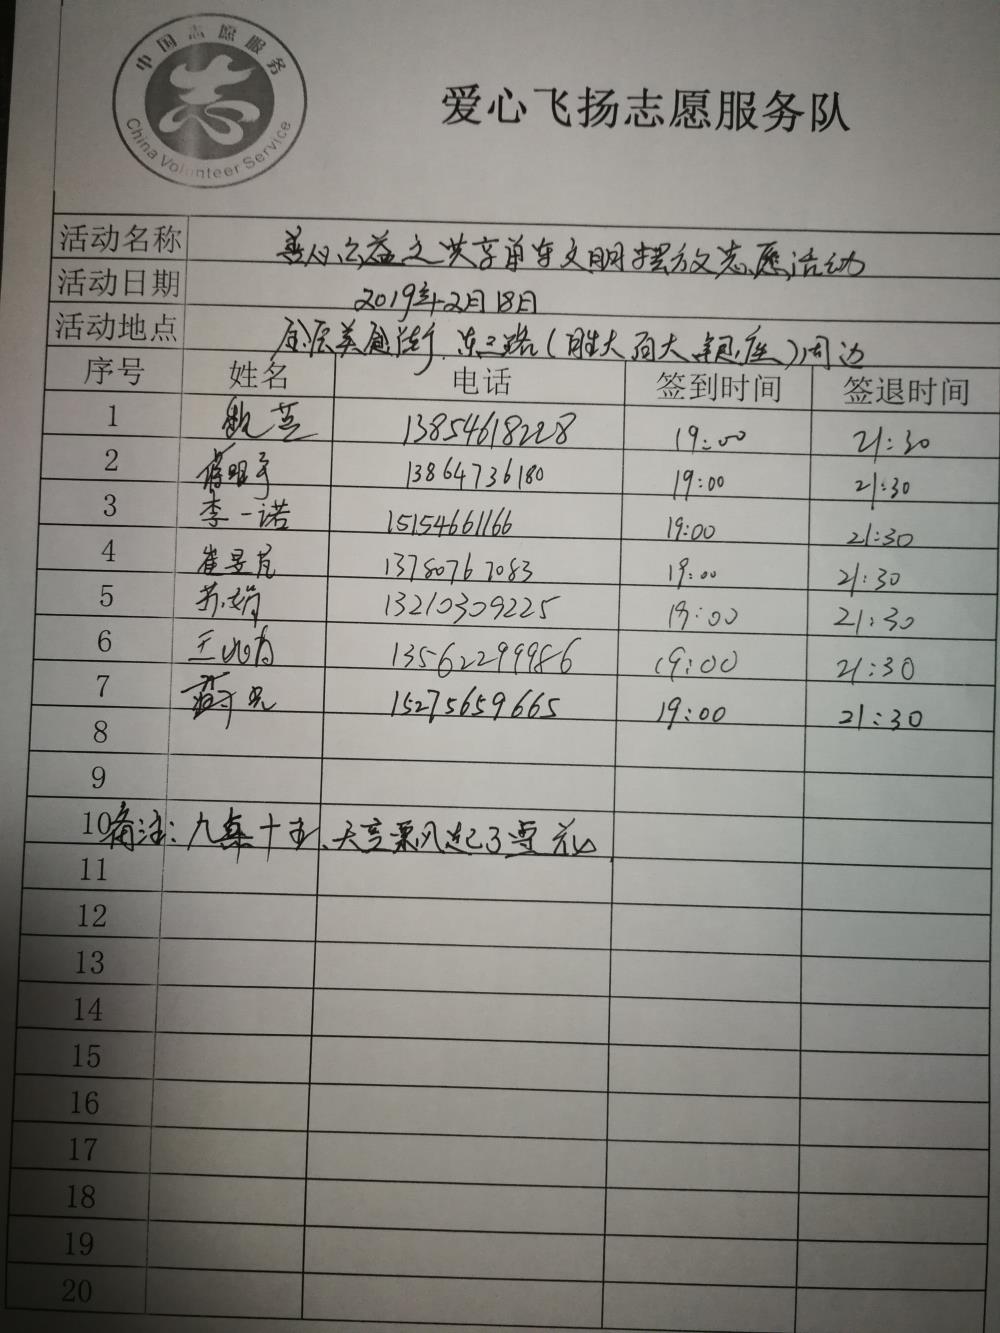 中国志愿服务
China Volunteer Service
爱心飞扬志愿服务队
活动名称 善心公益之共享单车文明摆放志愿活动
活动日期 2019年12月18日
活动地点 美食街.东三路(胜大 百大 银座)周边
序号 姓名 电话 签到时间 签退时间
1 13854618228 19:00 21:30
2 13864736180 19:00 21:30
3 李一诺 15154661166 19:00 21:30
4 13780767083 19:00 21:30
5 苏娟 13210309225 19:00 21:30
6 13562299986 19:00 21:30
7 15275659665 19:00 21:30
8
9
10 备注: 九 十 天 风起了
11
12
13
14
15
16
17
18
19
20